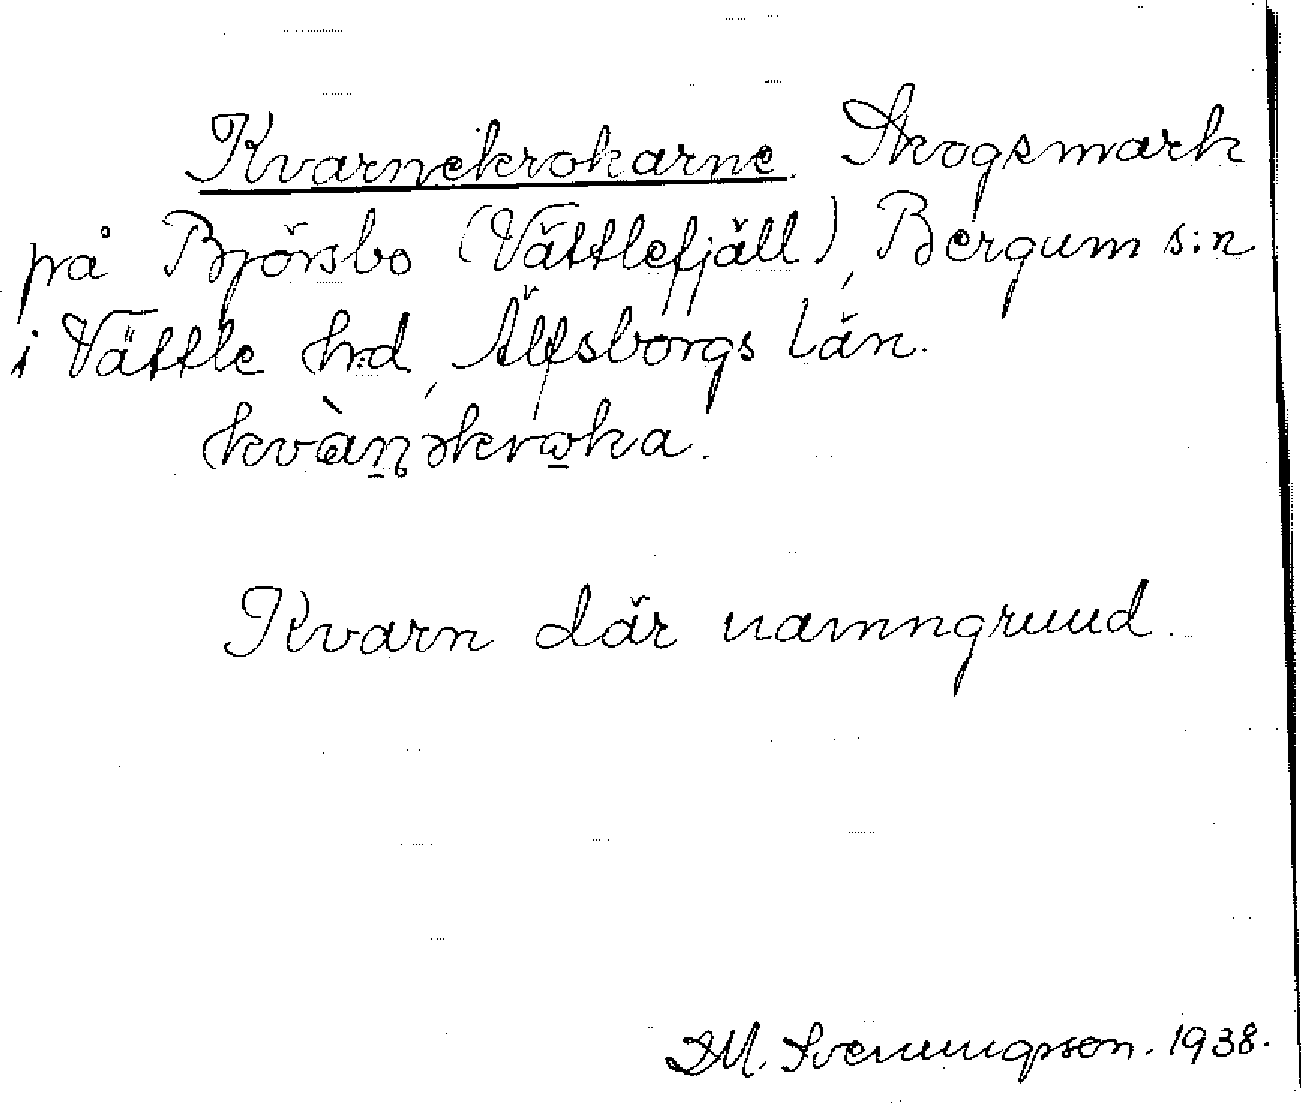 Kvarnekrokarne. Skogsmark
på Björsbo (Vättlefjäll), Bergum s:n
i Vättle h:d, Älfsborgs län.
kvàṉəkrω̱ka.
Kvarn där namngrund.
D.M. Svenungson. 1938.